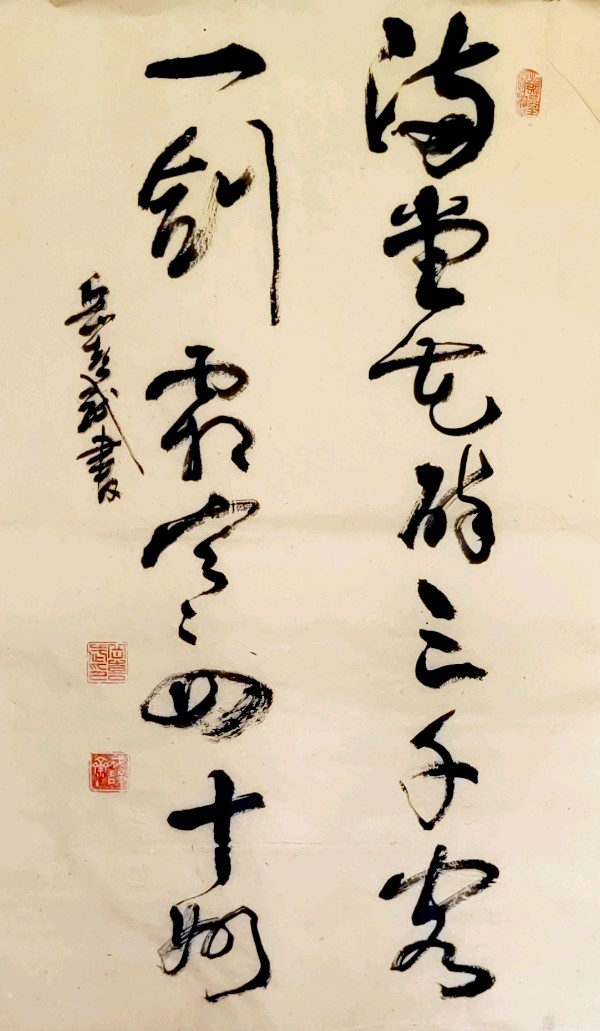 满堂花醉三千客
一剑霜寒四十州
岳志武書